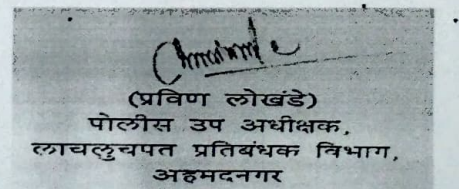 (प्रविण लोखंडे)
पोलीस उप अधीक्षक,
लाचलुचपत प्रतिबंधक विभाग,
अहमदनगर